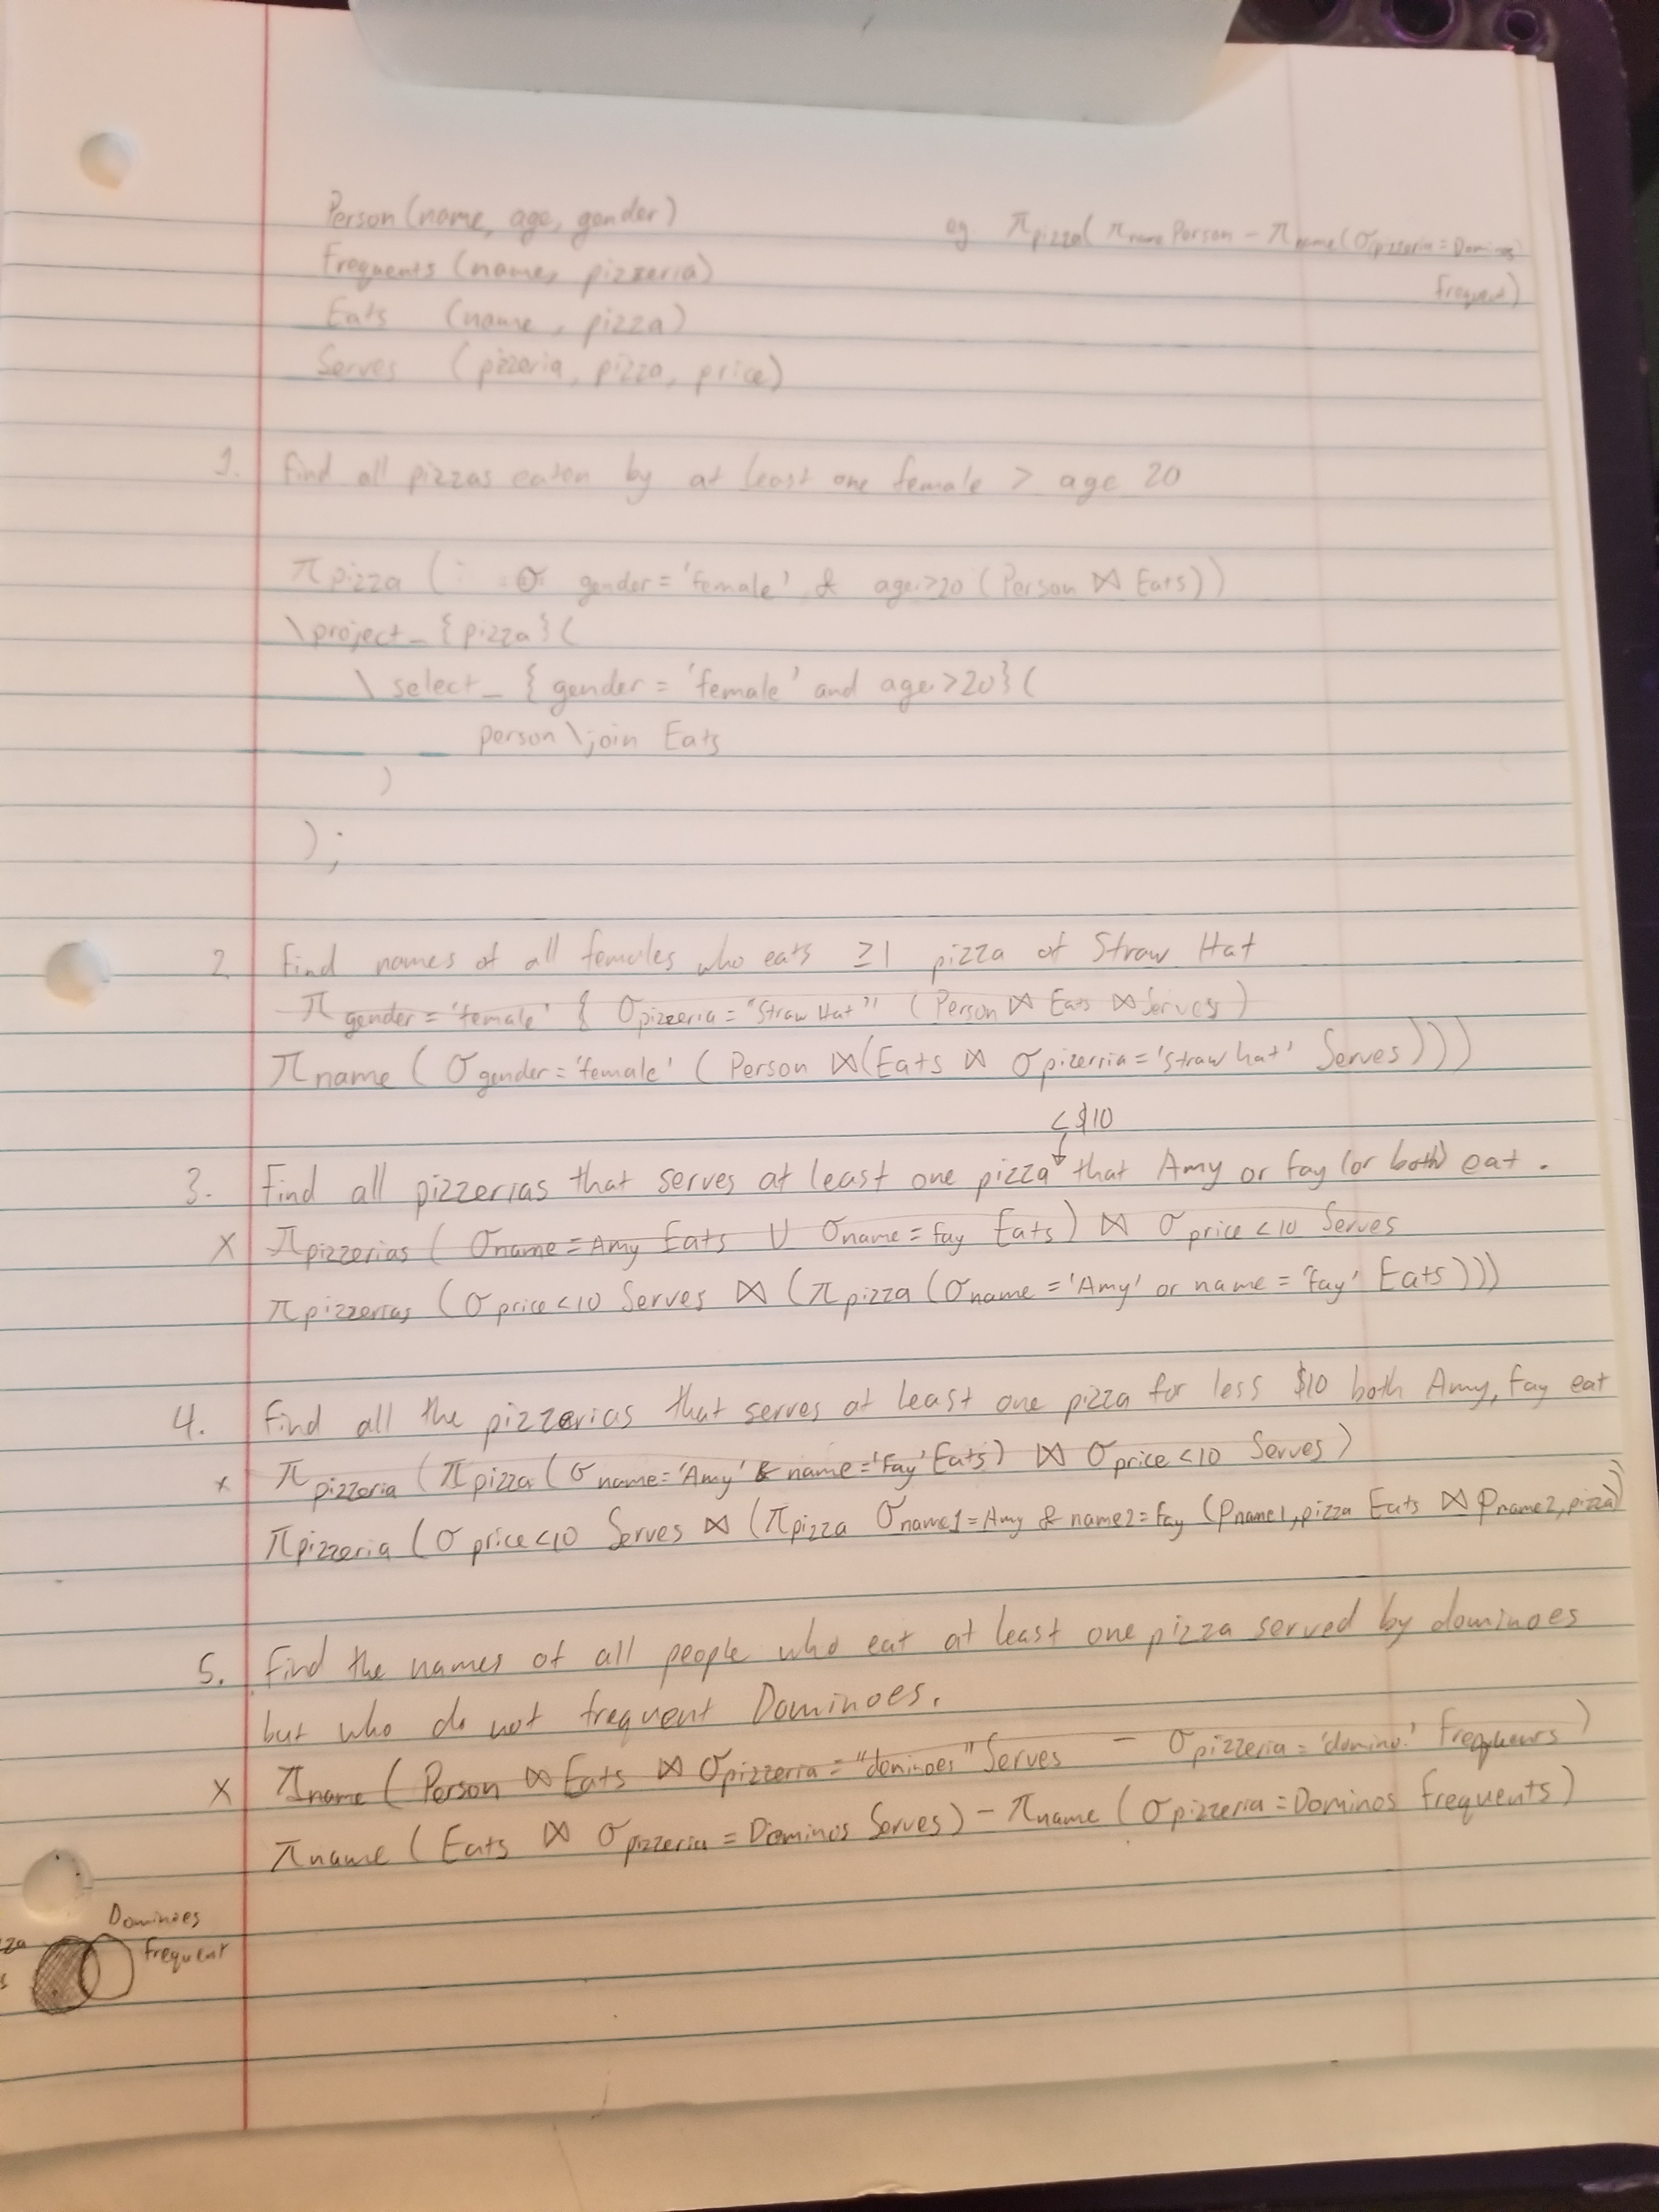 Person (name, age, gender)
eg π pizza( π name Person - π name (σ pizzeria = Dominos
Frequent)
Frequents (name, pizzeria)
Eats (name, pizza)
Serves (pizzeria, pizza, price)
1. Find all pizzas eaten by at least one female > age 20
π pizza ( σ gender = 'female' & age >20 (Person ⋈ Eats))
\project_{pizza}(
\select_ {gender = 'female' and age >20}(
person \join Eats
)
);
2 Find names of all females who eats ≥1 pizza of Straw Hat
π gender = 'female' { σ pizzeria = "Straw Hat" (Person ⋈ Eats ⋈ Serves)
π name ( σ gender = 'female' ( Person ⋈ (Eats ⋈ σ pizerria = 'straw hat' Serves)))
< $10
3. Find all pizzerias that serves at least one pizza that Amy or Fay (or both) eat.
X π pizzerias ( σ name = Amy Eats ∪ σ name = Fay Eats) ⋈ σ price < 10 Serves
π pizzerias (σ price < 10 Serves ⋈ (π pizza (σ name = 'Amy' or name = 'Fay' Eats)))
4. Find all the pizzerias that serves at least one pizza for less $10 both Amy, Fay eat
x π pizzeria (π pizza (σ name = 'Amy' & name = 'Fay' Eats) ⋈ σ price < 10 Serves)
π pizzeria (σ price < 10 Serves ⋈ (π pizza σ name1 = Amy & name2 = Fay (ρ name1, pizza Eats ⋈ ρ name2, pizza)
5. Find the names of all people who eat at least one pizza served by dominoes
but who do not frequent Dominoes.
X π name ( Person ⋈ Eats ⋈ σ pizzerria = "dominoes" Serves - σ pizzeria = 'domino' Frequeurs)
π name ( Eats ⋈ σ pizzeria = Dominos Serves) - π name (σ pizzeria = Dominos Frequents)
Dominoes
frequent